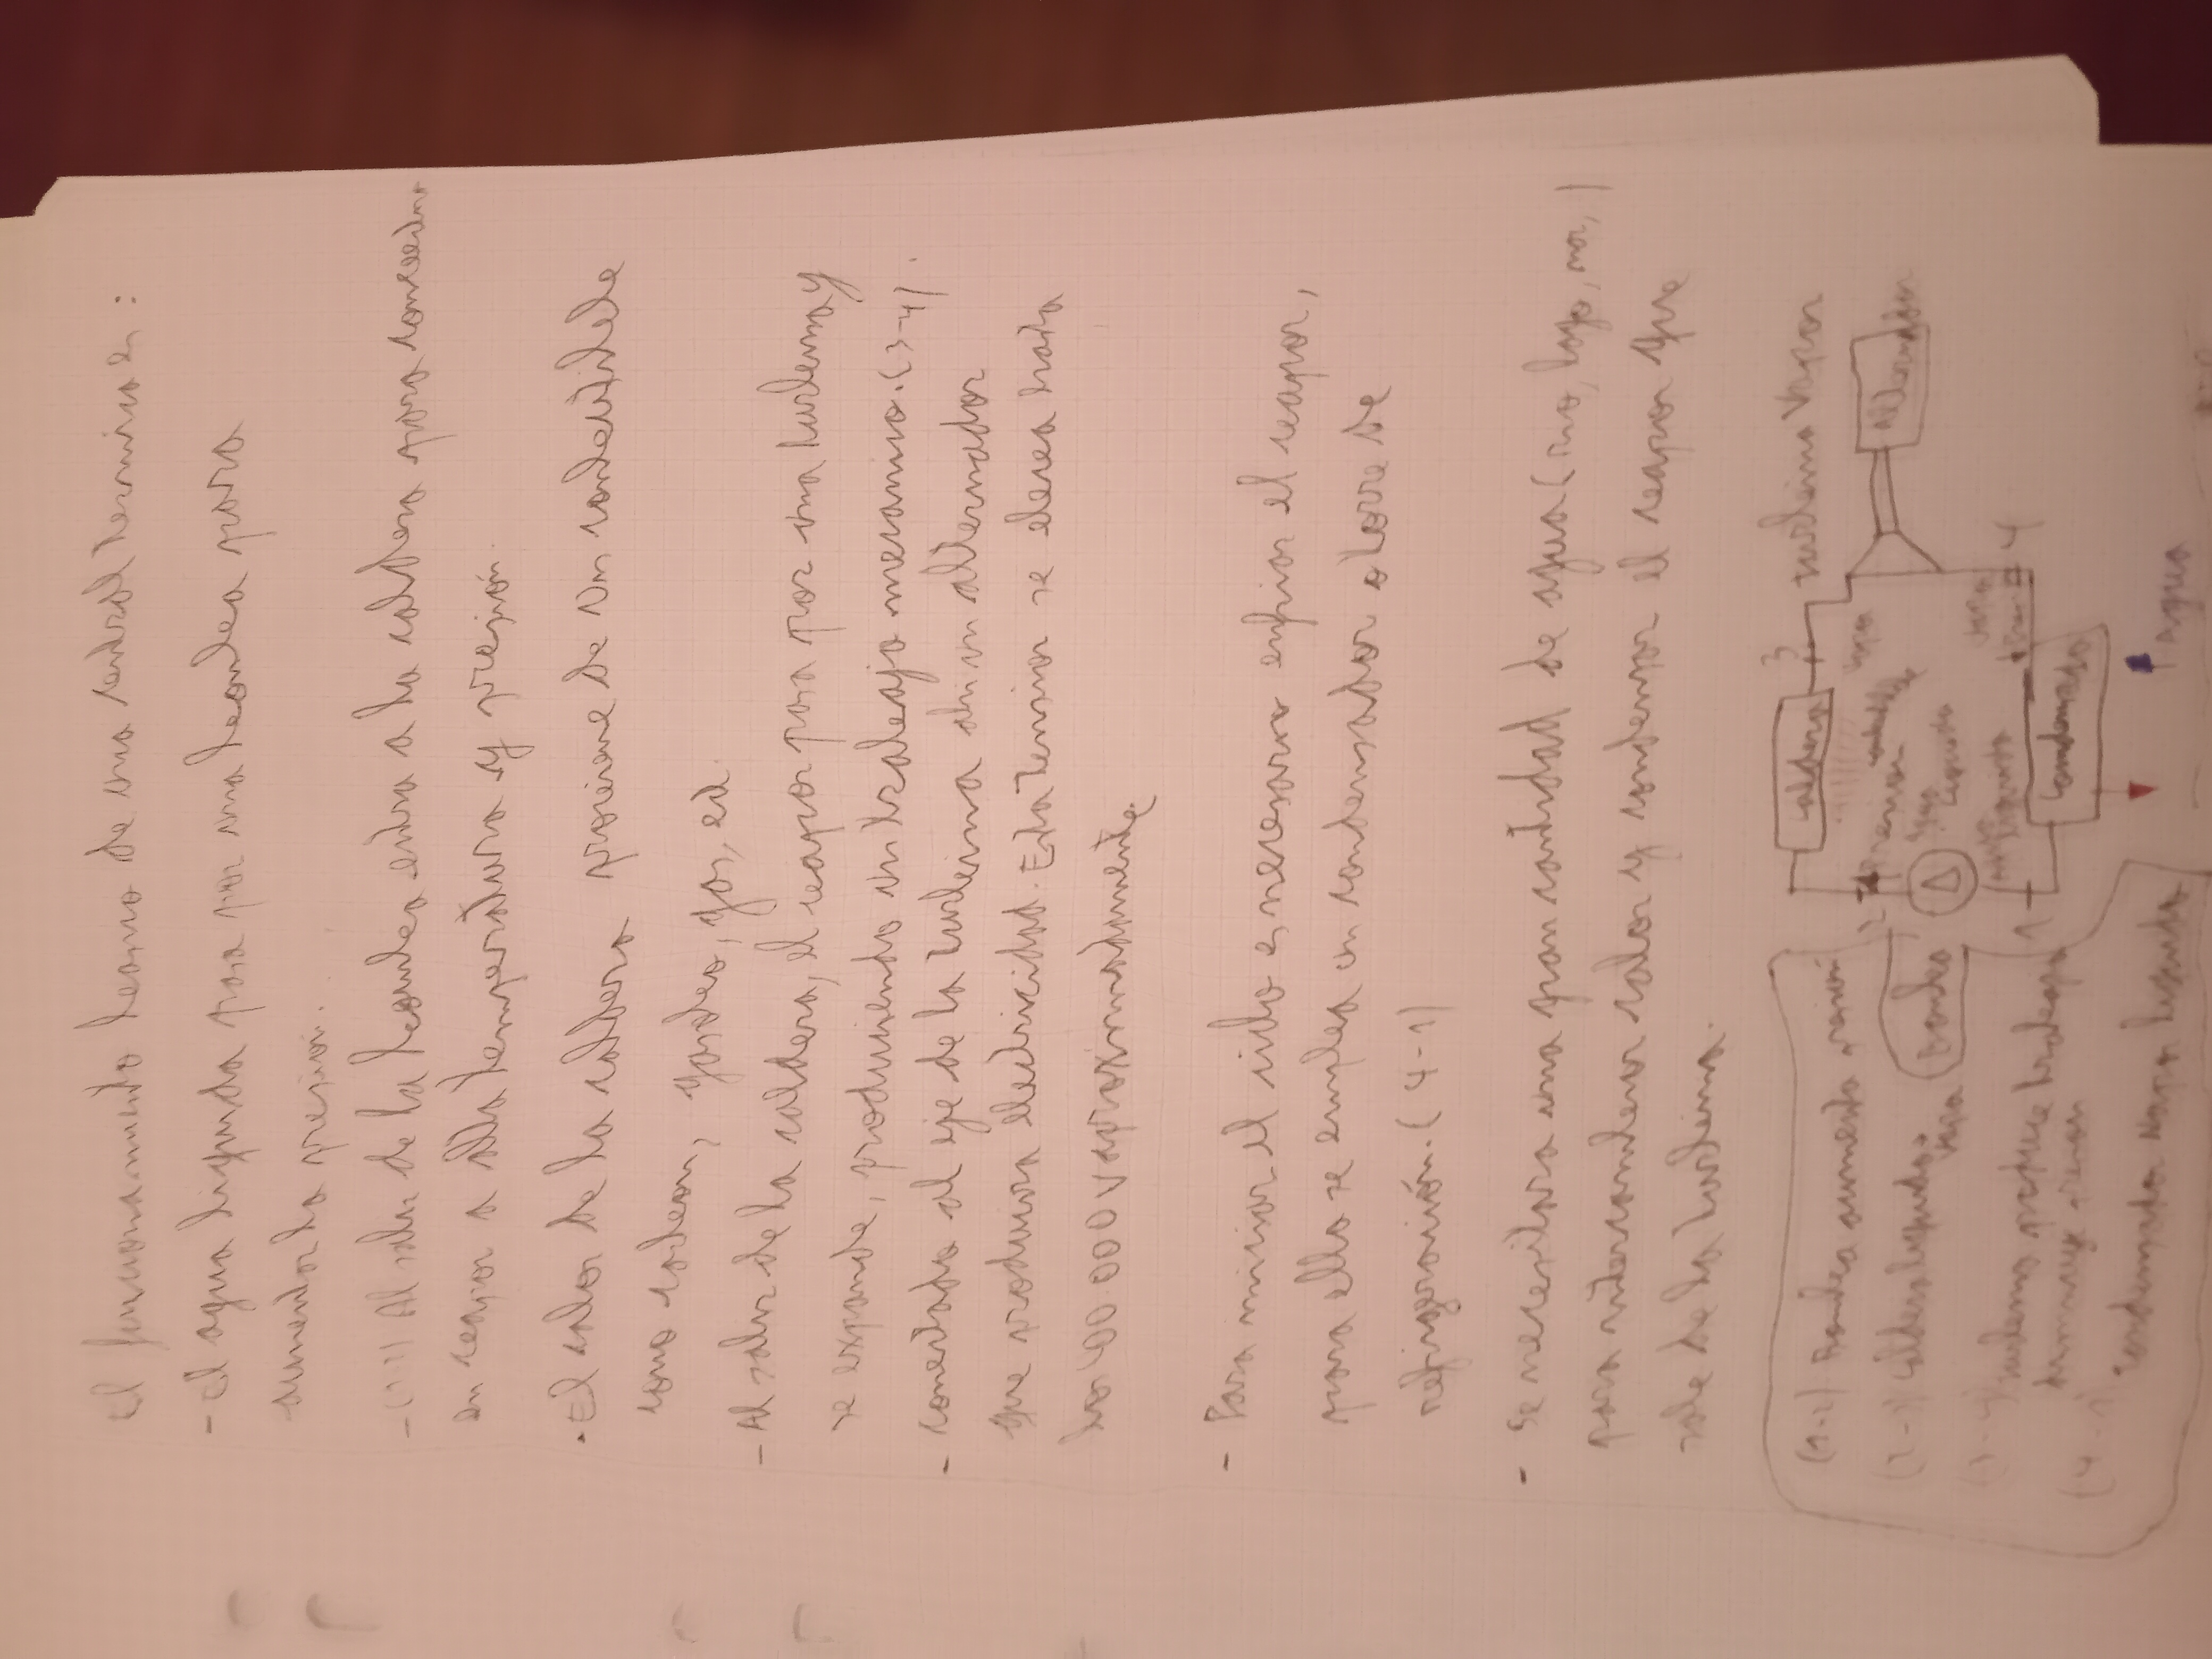 El funcionamiento basico de una central termica es:
- El agua liquida pasa por una bomba para
aumentar la presión.
- Al salir de la bomba entra a la caldera para
en vapor a alta temperatura y presión.
· El calor de la caldera proviene de un combustible
como carbon, gas, ect.
- Al salir de la caldera, el vapor pasa por una turbina y
se expande, produciendo un trabajo mecanico. (3-4).
- conectado al eje de la turbina ahi un alternador
que producira electricidad. Esta tension se eleva hasta
los 400.000 V aproximadamente
- Para iniciar el ciclo es necesario enfriar el vapor,
para ello se emplea un condensador o torre de
refrigeración. (4-1)
- Se necesitara una gran cantidad de agua (rio, lago, mar,)
para intercambiar calor y condensar el vapor que
sale de la turbina.
(1-2) Bomba aumenta presión
(2-3) caldera liquido → vapor
(3-4) turbina produce trabajo
disminuye presion
(4-1) condensador vapor liquido
Bomba
1
2
Caldera
3
turbina Vapor
Alternador
4
Condensador
Agua